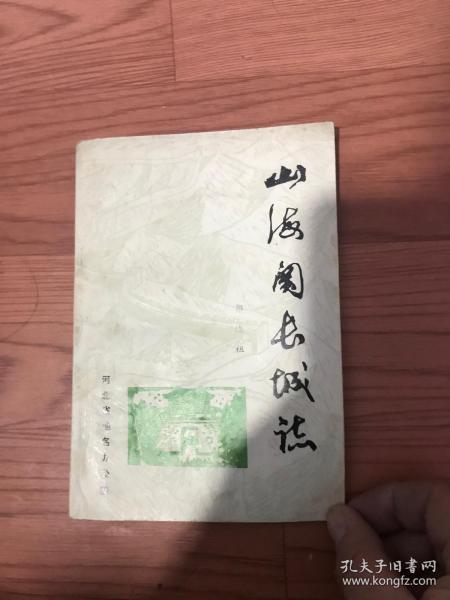 山海关长城志
河北省地名办公室
孔夫子旧书网
www.kongfz.com